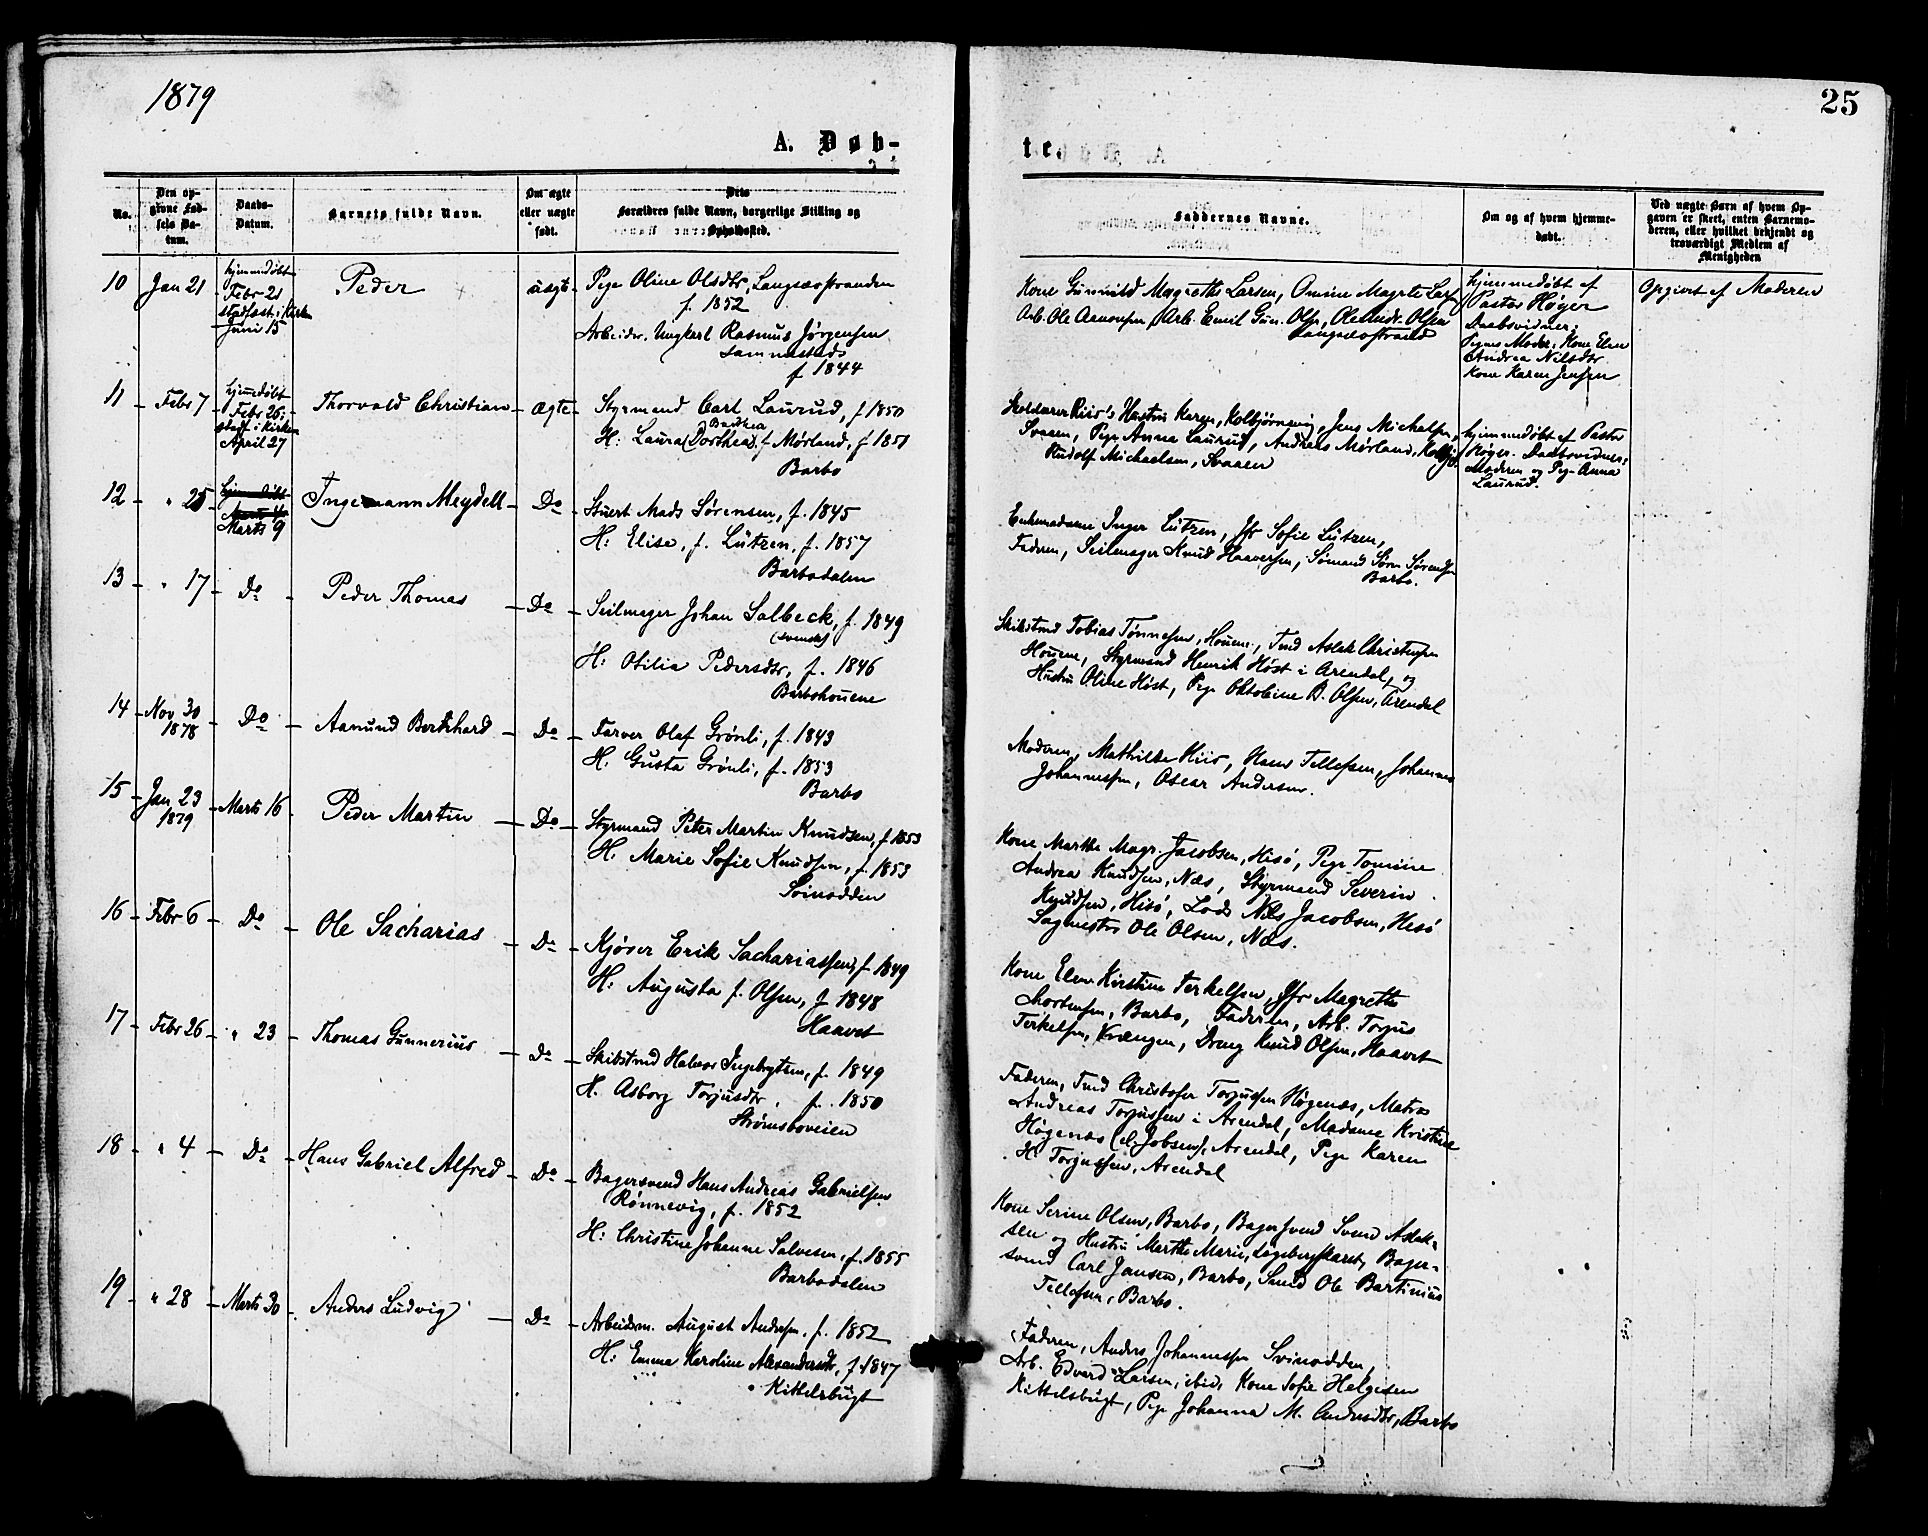 1879
25
A. Døb-
te.
No.
Den op-
givne Fød-
sels Da-
tum.
Daabs-
Datum.
Barnets fulde Navn.
Om ægte
eller uægte
født.
Dets
Forældres fulde Navn, borgerlige Stilling og
Opholdssted.
Faddernes Navne.
Om og af hvem hjemme-
døbt.
Ved uægte Børn af hvem Op-
gaven er skeet, enten Barnemo-
deren, eller hvilket bekjendt og
troværdigt Medlem af
Menigheden
10 Jan 21
hjemmedøbt
Febr 21
stadfæst. i Kirken
Juni 15
Peder
uægte
Pige Oline Olsdtr, Langsæostranden
f. 1852
Arbeider, Ungkarl Rasmus Jørgensen
sammesteds
f 1844
Kone Gunnild Magrethe Larsen, Omine Magrte Lars
Arb. Ole Aanonsen, Arb. Emil Gun. Olsen, Ole Andr. Olsen
Langsæostrand
hjemmedøbt af
Pastor Høyer
Daabsvidner:
Pigens Moder, Kone Elen
Andrea Nilsdtr
Kone Karen Jensen
Opgivet af Moderen
11 Febr 7
hjemmedøbt
Febr 26;
stadf i Kirken
April 27
Thorvald Christian
ægte
Styrmand Carl Laurud, f 1850
Barthea
H: Laura (Dorthea), f Mørland, f 1851
Barbo
Skolelærer Riis's Hustru Karen, Kolbjørnsvig, Jens Michalsen,
Svaaen, Pige Anna Laurud, Andreas Mørland, Kolbj.
Rudolf Michaelsen, Svaaen
hjemmedøbt af Pastor
Høyer. Daabsvidner:
Moderen og Pige Anna
Laurud.
12 " 25
Marts 9
Ingemann Meydell
Do
Stuert Mads Sørensen, f. 1845
H: Elise, f. Lützen, f. 1857
Barbodalen
Enkemadame Inger Lützen, Jfr Sofie Lützen,
Faderen, Seilmager Knud Haaversen, Sømand Søren Sørensen
Barbo.
13 " 17
Do
Peder Thomas
Do
Seilmager Johan Salbeck, f. 1849
(svensk)
H: Otilia Pedersdtr, f. 1846
Barbohouene
Skibstmd Tobias Tønnesen, Houene, Tmd Aslak Christensen
Houene, Styrmand Henrik Høst i Arendal, og
Hustru Oline Høst, Pige Oktobine B. Olsen, Arendal
14 Nov 30
1878
Do
Aanund Bernhard
Do
Farver Olaf Grønli, f. 1843
H. Gusta Grønli, f. 1853
Barbo
Moderen, Mathilde Riis, Hans Tellefsen, Johannes
Johannessen, Oscar Andersen.
15 Jan 23
1879
Marts 16
Peder Martin
Do
Styrmand Peter Martin Knudsen, f 1853
H: Marie Sofie Knudsen, f. 1853
Svinodden
Kone Marthe Magr. Jacobsen, Hisø, Pige Tomine
Andrea Knudsen, Næs, Styrmand Severin
Knudsen, Hisø, Lods Nils Jacobsen, Hisø
Sagmester Ole Olsen, Næs.
16 Febr 6
Do
Ole Sacharias
Do
Kjøver Erik Sachariassen, f 1849
H: Augusta f. Olsen, f 1848
Haavet
Kone Elen Kirstine Terkelsen, Jfr Magrethe
Mortensen, Barbo, Faderen, Arb. Torjus
Terkelsen, Vrængen, Dreng Knud Olsen, Haavet
17 Febr 26
" 23
Thomas Gunnerius
Do
Skibstmd Halvor Ingebrgtsen, f. 1849
H. Asborg Torjusdtr. f. 1850
Strømsboveien
Faderen, Tmd Christofer Torjussen Høgenæs, Matros
Andreas Torjussen i Arendal, Madame Kristine
Høgenæs (el. Jobsen), Arendal, Pige Karen
H Torjussen, Arendal
18 " 4
Do
Hans Gabriel Alfred
Do
Bagersvend Hans Andreas Gabrielsen
Rønnevig, f. 1852
H: Christine Johanne Salvesen, f. 1855
Barbodalen
Kone Serine Olsen, Barbo, Bagersvend Svend Aslak-
sen og Hustru Marthe Marie, Longbergskaret, Bager-
svend Carl Jansen, Barbo, Smed Ole Bartinius
Tellefsen, Barbo.
19 " 28
Marts 30
Anders Ludvig
Do
Arbeidsm. August Andersen, f. 1852
H: Emma Karoline Alexandersdtr, f. 1847
Kittelsbugt
Faderen, Anders Johannessen Svinodden,
Arb. Edvard Larsen, ibid, Kone Sofie Helgesen
Kittelsbugt, Pige Johanna M. Andersdtr, Barbo